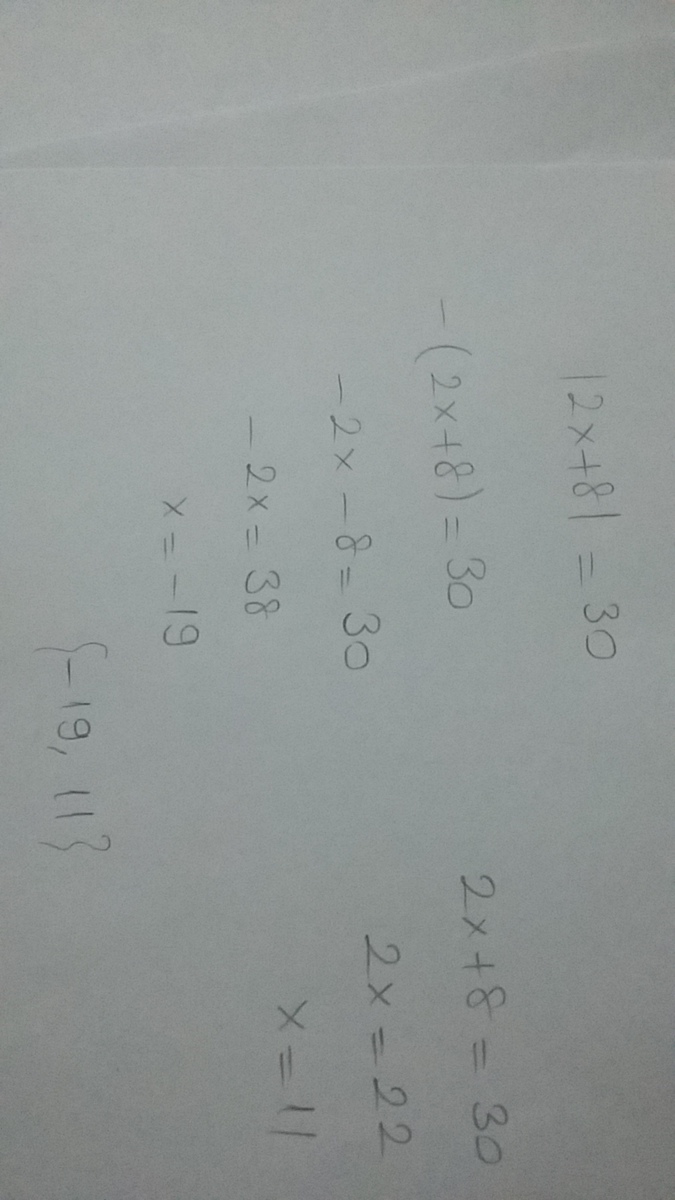 |2x+8| = 30
-(2x+8) = 30
-2x-8 = 30
-2x = 38
x = -19
2x+8 = 30
2x = 22
x = 11
{-19, 11}